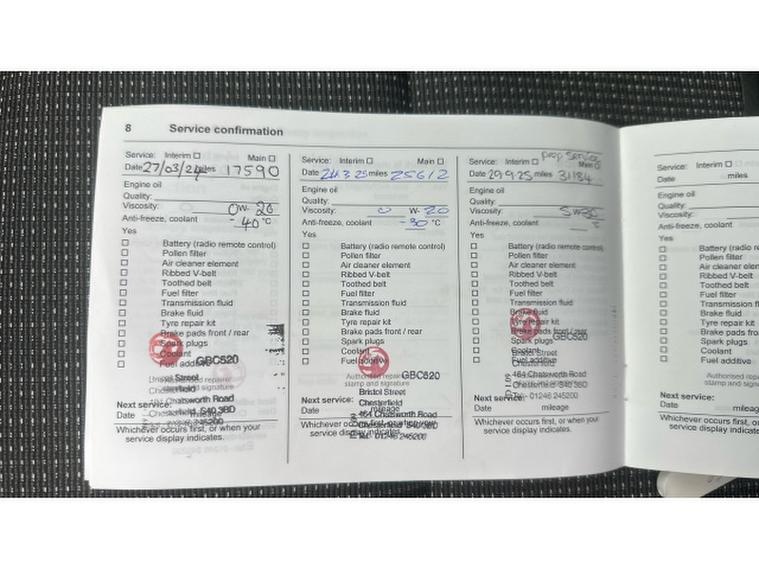 8 Service confirmation
Service: Interim ☐ Main ☐
Date 27/03/24 miles 17590
Engine oil
Quality:
Viscosity: 0W-20
Anti-freeze, coolant -40 °C
Yes
☐ Battery (radio remote control)
☐ Pollen filter
☐ Air cleaner element
☐ Ribbed V-belt
☐ Toothed belt
☐ Fuel filter
☐ Transmission fluid
☐ Brake fluid
☐ Tyre repair kit
☐ Brake pads front / rear
☐ Spark plugs
☐ Coolant
☐ Fuel additive
GBC520
Bristol Street
Chesterfield
Chatsworth Road
Chesterfield S40 3BD
246200
Next service:
Date mileage
Whichever occurs first, or when your
service display indicates.
Service: Interim ☐ Main ☐
Date 24.3.25 miles 25612
Engine oil
Quality:
Viscosity: 0 W-20
Anti-freeze, coolant -30 °C
Yes
☐ Battery (radio remote control)
☐ Pollen filter
☐ Air cleaner element
☐ Ribbed V-belt
☐ Toothed belt
☐ Fuel filter
☐ Transmission fluid
☐ Brake fluid
☐ Tyre repair kit
☐ Brake pads front / rear
☐ Spark plugs
☐ Coolant
☐ Fuel additive
Authorised repairer
stamp and signature
GBC520
Bristol Street
Chesterfield
464 Chatsworth Road
Chesterfield S40 3BD
Tel:- 01246 245200
Next service:
Date mileage
Whichever occurs first, or when your
service display indicates.
prep service
Service: Interim ☐ Main ☐
Date 29.9.25 miles 31184
Engine oil
Quality:
Viscosity: 5W30
Anti-freeze, coolant °C
Yes
☐ Battery (radio remote control)
☐ Pollen filter
☐ Air cleaner element
☐ Ribbed V-belt
☐ Toothed belt
☐ Fuel filter
☐ Transmission fluid
☐ Brake fluid
☐ Tyre repair kit
☐ Brake pads front / rear
☐ Spark plugs
☐ Coolant
☐ Fuel additive
GBC520
Bristol Street
Chesterfield
464 Chatsworth Road
Chesterfield S40 3BD
Tel:- 01246 245200
Next service:
Date mileage
Whichever occurs first, or when your
service display indicates.
Service: Interim ☐
Date miles
Engine oil
Quality:
Viscosity:
Anti-freeze, coolant
Yes
☐ Battery (radio
☐ Pollen filter
☐ Air cleaner
☐ Ribbed V-belt
☐ Toothed belt
☐ Fuel filter
☐ Transmission
☐ Brake fluid
☐ Tyre repair kit
☐ Brake pads
☐ Spark plugs
☐ Coolant
☐ Fuel additive
Authorised
stamp and
Next service:
Date
Whichever occurs first,
service display